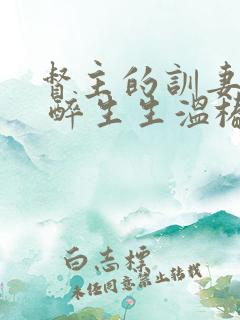 督主的訓妻
醉生生溫
白志標
未经同意禁止转载